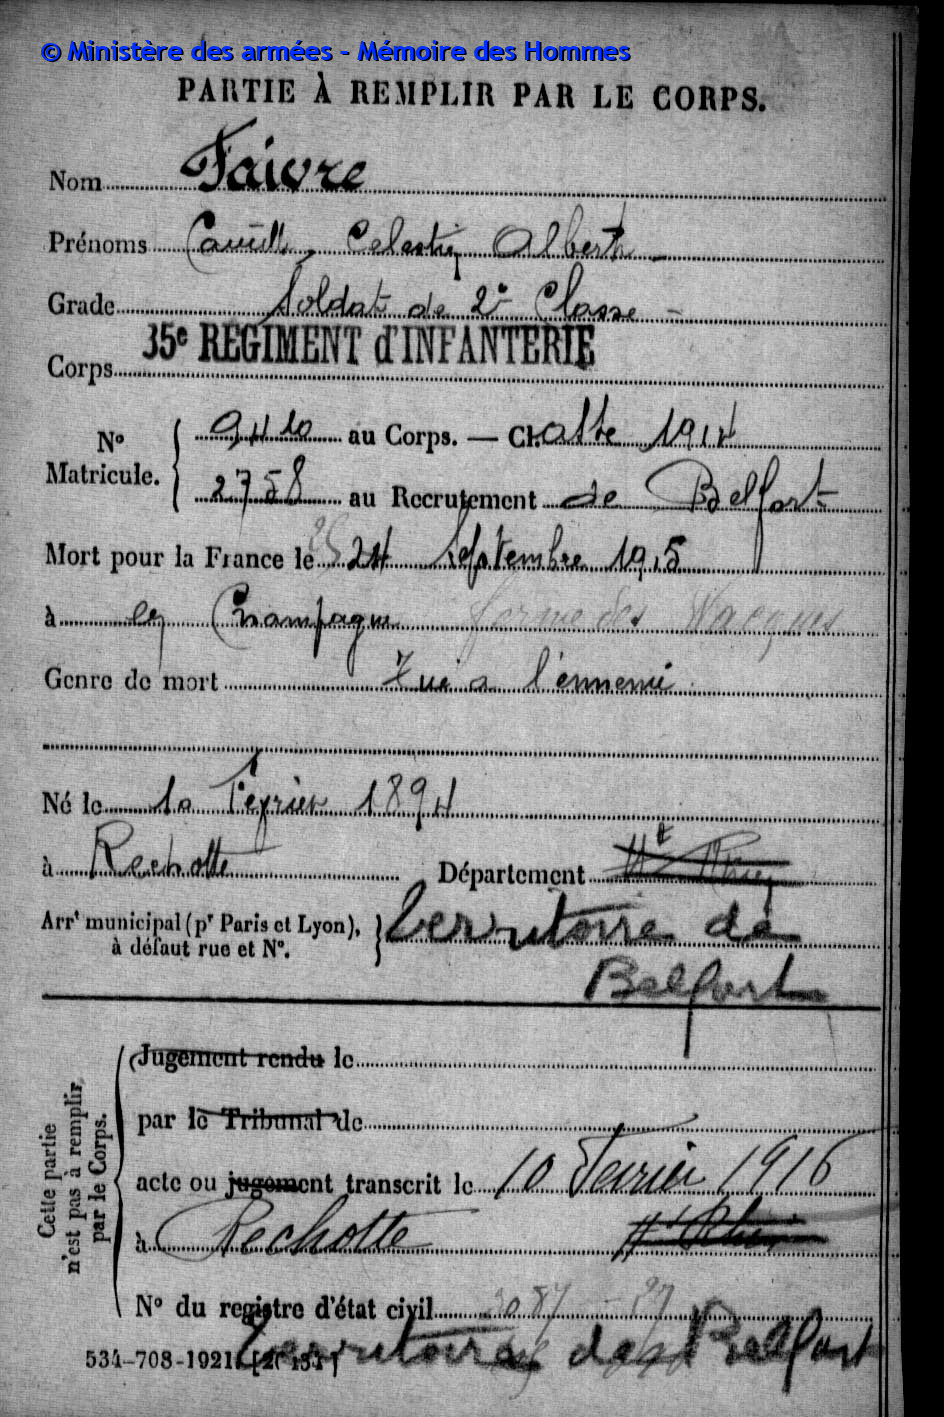 © Ministère des armées - Mémoire des Hommes
PARTIE À REMPLIR PAR LE CORPS.
Nom Faivre
Prénoms Camill, Celestin Albert
Grade Soldat de 2e Classe
Corps 35e REGIMENT d'INFANTERIE
No Matricule. 9410 au Corps. — Cl. Asse 1914
2758 au Recrutement de Belfort
Mort pour la France le 25 24 Septembre 1915
à en Champagne ferme des Wacques
Genre de mort Tué a l'ennemi
Né le 10 Fevrier 1894
à Rechotte Département Ht Rhin
Arrt municipal (pr Paris et Lyon), à défaut rue et No. Territoire de
Belfort
Cette partie n'est pas à remplir par le Corps.
Jugement rendu le
par le Tribunal de
acte ou jugement transcrit le 10 Fevrier 1916
à Rechotte Ht Rhin
No du registre d'état civil
Territoire de Belfort
534-708-1921. [26434]